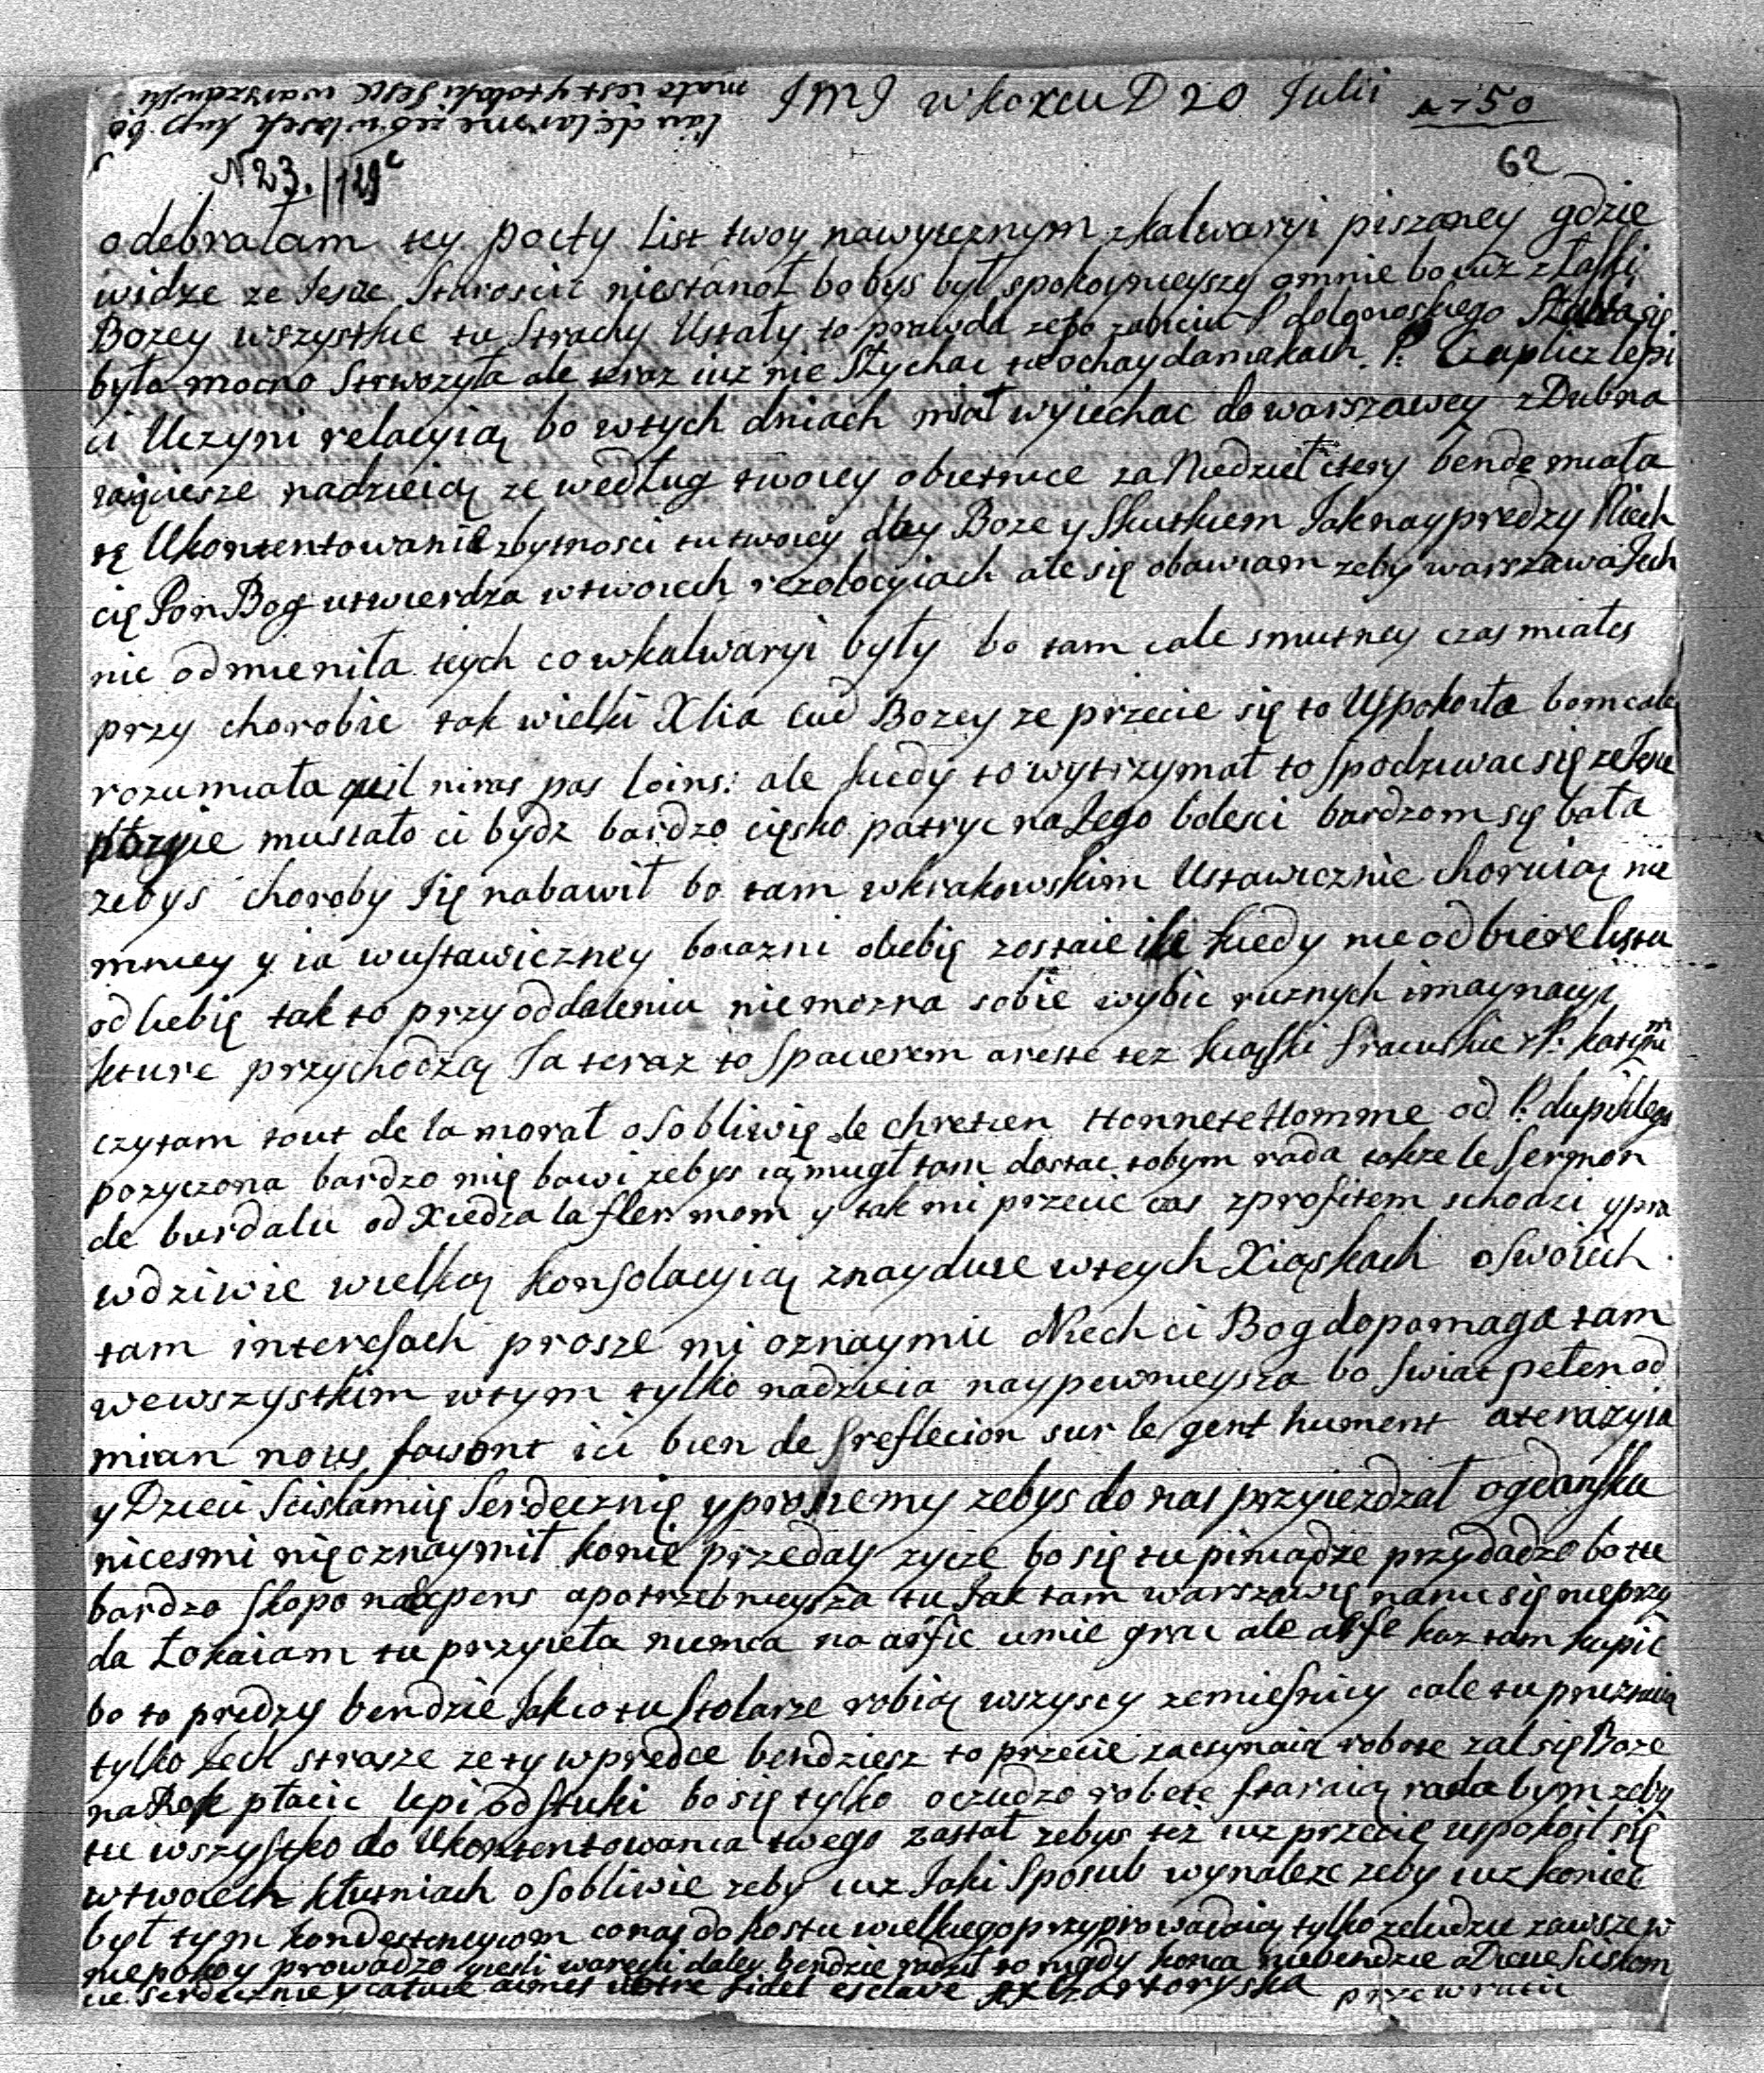 JMJ w korcu D 20 Julii 1750
62
N 23. /129c
odebrałam tey poczty List twoy z kalwaryi pisaney gdzie
widze ze Jesze Starościc niestanoł bo bys był spokoynieyszy omnie bo iuz z Łaski
Bozey wszystkie tu Strachy Ustały to prawda ze po zabiciu P dolgoroskiego
była mocno Strwozyła ale teraz iuz nie Słychac tu ochaydamakach. P. Czaplicz lepi
ci Uczyni relacyią bo wtych dniach miał wyiechac do warszawey z Dubna
nadzieią ze według twoiey obietnice za Niedziel cztery bende miała
tę Ukontentowanie zbytnosci tu twoiey day Boze y Skutkiem Jak nayprędzy Niech
cię Pon Bog utwierdza wtwoiech rezolocyiach ale się obawiam zeby warszawa Jech
nie odmieniła tych co wkalwaryi były bo tam cale smutney czas miałes
przy chorobie tak wielki Xcia cud Bozey ze przecie się to Uspokoiła bom cale
rozumiała quil niras pas loins: ale kiedy to wytrzymał to spodziwac się ze Jesze
pozyie musiało ci bydz bardzo cięsko patryc na Jego bolesci bardzom się bała
zebys choroby Się nabawił bo tam wkrakowskim Ustawicznie choruią nie
mniey y ia wustawiczney boiazni ociebię zostaie ile kiedy nie odbiere listu
od ciebię tak to przy oddaleniu niemozna sobie wybic ruznych imaynacyi
kture przychodzą Ja teraz to Spacerem a reste tez ksiąski fracuskie
czytam tout de la morał osobliwię le chretien Honnete Homme od P.
pozyczona bardzo mię bawi zebys ią mugł tam dostac tobym rada takze le Sermon
de burdalu od Xiedza la flermom y tak mi przecie czas zprofitem schodzi y pra
wdziwie wielką konsolacyią znayduie wtych Xiąskach oswoiech
tam interesach prosze mi oznaymic Niech ci Bog dopomaga tam
wewszystkim wtym tylko nadzieia naypewnieysza bo Swiat pełen od
mian nous fasont ici bien de sreflecion sur le gent hument a teraz yia
y Dzieci Sciskamię Serdecznię y prosiemy zebys do nas przyiezdzał ogdansku
nicesmi nię oznaymił konie przeday zycze bo się tu piniądze przydadzo bo tu
bardzo skopo na expens a potrzebnieysza tu Jak tam warszawię nanic się nieprzy
da Łokaiam tu przyieła niemca na arfie umie grac ale arfe kaz tam kupic
bo to prędzy bendzie Jak co tu Stolarze robią wszyscy zemiesnicy cale tu
tylko Jech strasze ze ty wpredce bendziesz to przecie zaczynaią robote zal się Boze
na Rok płacic lepi od stuki bo się tylko o cudzo robote staraią rada bym zeby
tu wszystko do Ukontentowania twego zastał zebys tez iuz przecie uspokoił się
wtwoiech kłutniach osobliwie zeby iuz Jaki Sposub wynaleze zeby iuz koniec
był tym kondestencyiom co nas do kostu wielkiego przyprowadzaią tylko ze ludzie zawsze w
niepokoy prowadzo iesli warecki daley bendzie radził to nigdy konca niebendzie a Dieue Sciskom
cie serdecznie y całuie aimes votre fidel esclave Czartoryska
przewrucic